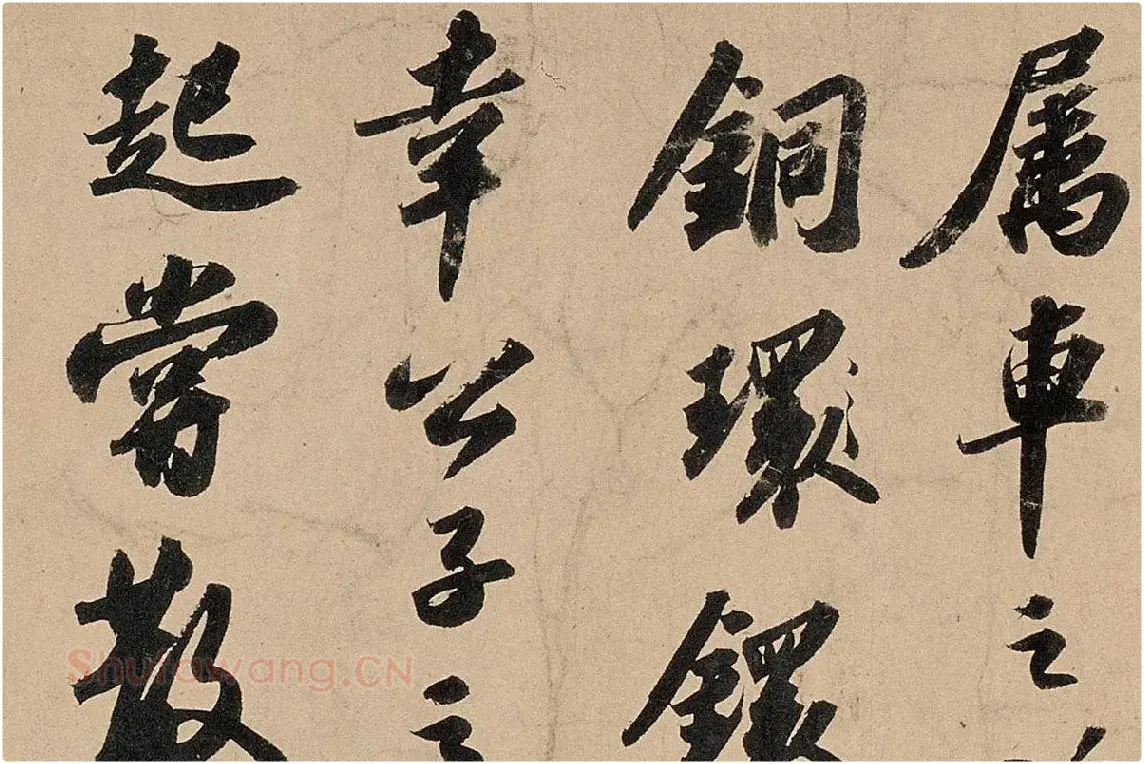 属車之
銅環
幸公子之
起當散
Shufawang.CN